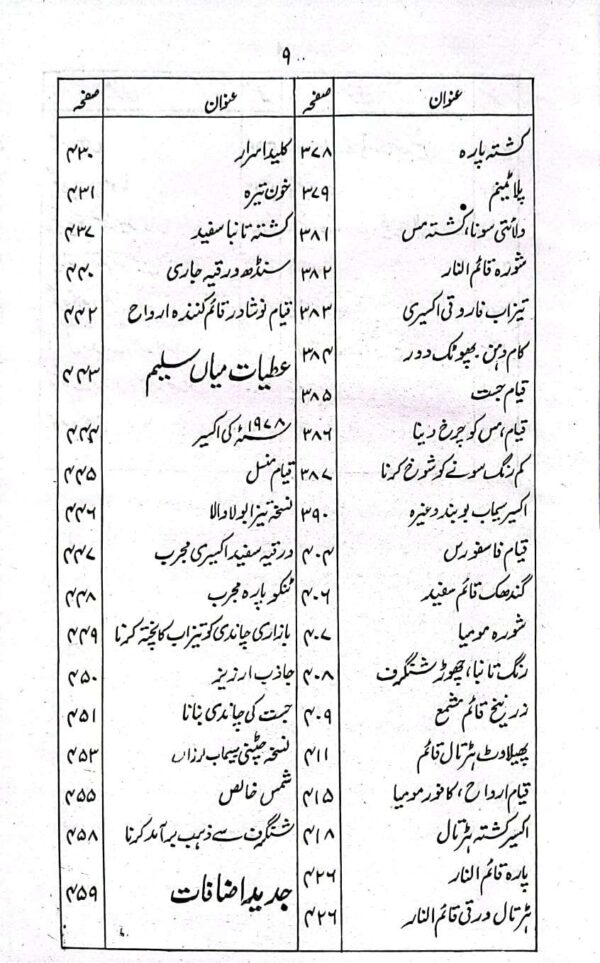 ۹
عنوان صفحہ
کشتہ پارہ ۳۷۸
پلاٹینم ۳۷۹
ولائتی سونا، کشتہ مس ۳۸۱
شورہ قائم النار ۳۸۲
تیزاب فاروقی اکسیری ۳۸۳
کام دہن۔ پھوٹک دور ۳۸۴
قیام جست ۳۸۵
قیام، مس کو چرخ دینا ۳۸۶
کم رنگ سونے کو شوخ کرنا ۳۸۷
اکسیر سیماب بوبند وغیرہ ۳۹۰
قیام فاسفورس ۴۰۴
گندھک قائم سفید ۴۰۶
شورہ مومیا ۴۰۷
رنگ تانبا، چھوڑ شنگرف ۴۰۸
زرنیخ قائم مشمع ۴۰۹
پھیلاوٹ ہڑتال قائم ۴۱۱
قیام ارواح، کافور مومیا ۴۱۵
اکسیر کشتہ ہڑتال ۴۱۸
پارہ قائم النار ۴۲۶
ہڑتال ورقی قائم النار ۴۲۶
عنوان صفحہ
کلید اسرار ۴۳۰
خون تیرہ ۴۳۱
کشتہ تانبا سفید ۴۳۷
سنڈھ ورقیہ جاری ۴۴۰
قیام نوشادر قائم کنندہ ارواح ۴۴۲
عطیات میاں سلیم ۴۴۳
۱۹۷۸ء کی اکسیر ۴۴۴
قیام منسل ۴۴۵
نسخہ تیزابو لا والا ۴۴۶
ورقیہ سفید اکسیری مجرب ۴۴۷
ٹنکو پارہ مجرب ۴۴۸
بازاری چاندی کو تیزاب کا پختہ کرنا ۴۴۹
جاذب ارزیز ۴۵۰
جست کی چاندی بنانا ۴۵۱
نسخہ چٹپٹی سیماب لرزاں ۴۵۳
شمس خالص ۴۵۵
شنگرف سے ذہب برآمد کرنا ۴۵۸
جدید اضافات ۴۵۹